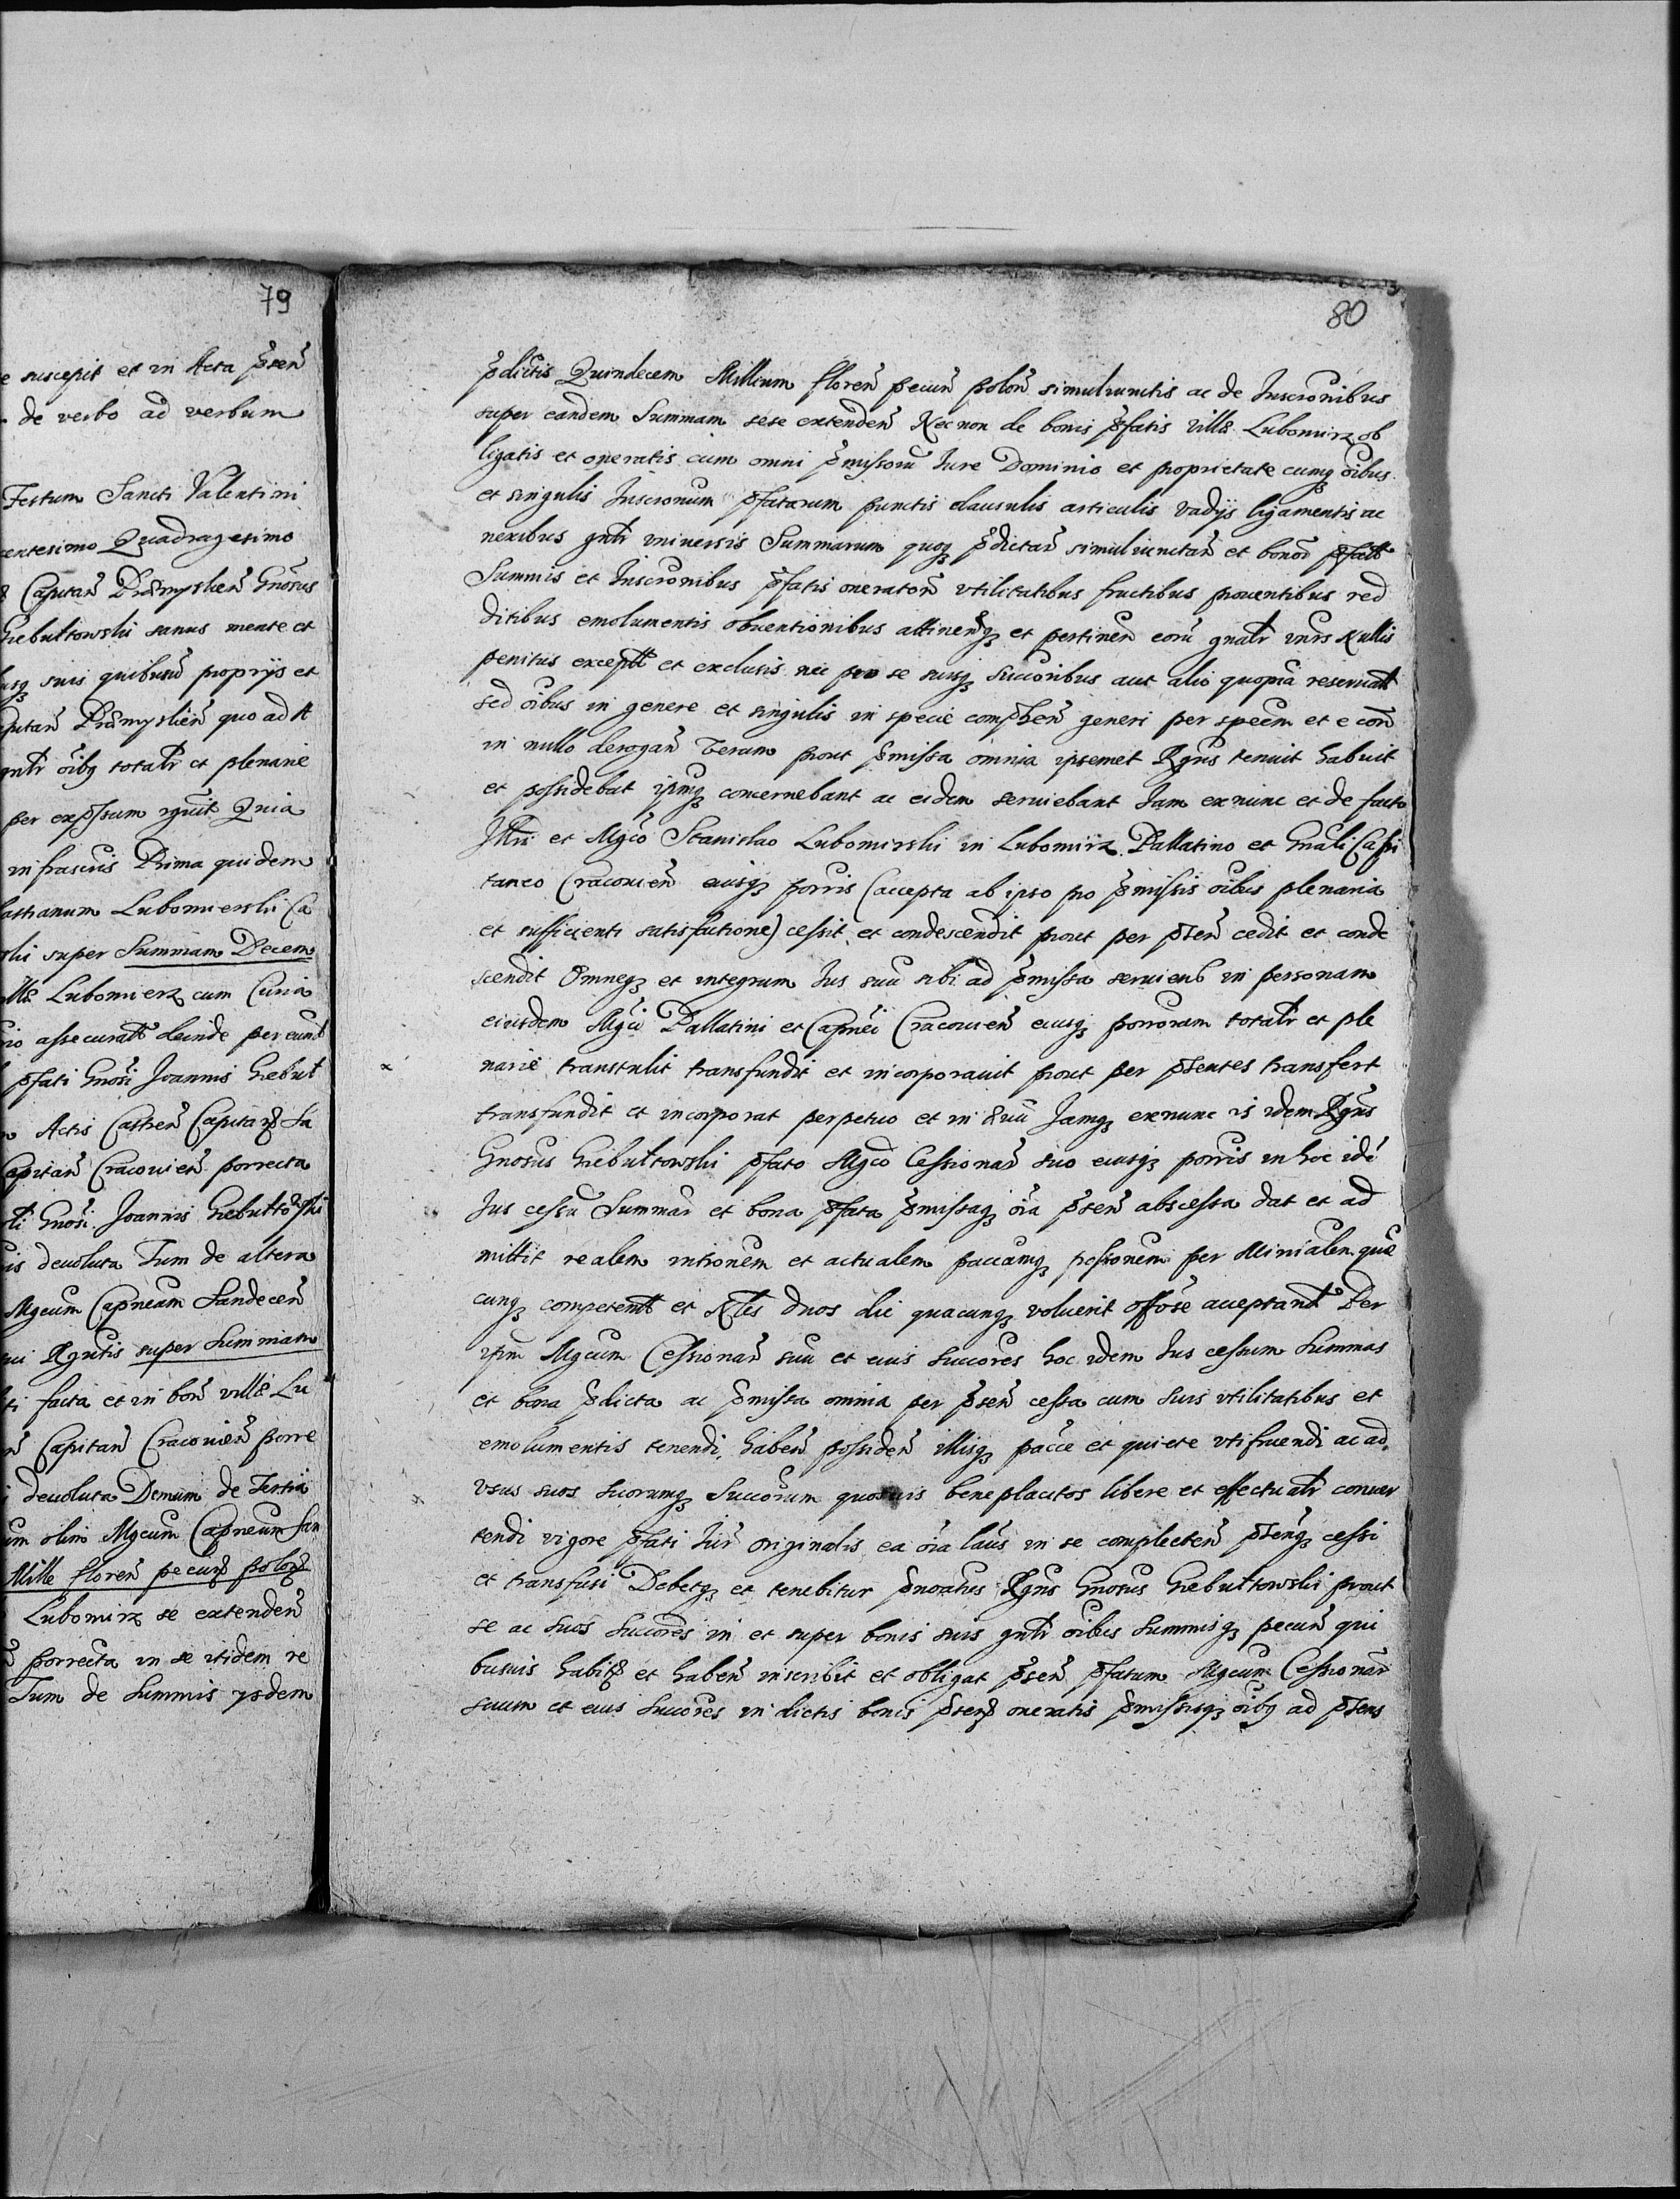 79
e suscepit et in Acta p̃sen̄
de verbo ad verbum
Festum Sancti Valentini
centesimo Quadragesimo
Capitan̄ Præmyslien̄ Gnosus
Grebultowski sanus mente et
usq suis quibusu propryis et
Capitan̄ Præmyslien̄ quo ad A
gntr oibq totalr et plenarie
per exp̃ssum rgnit Quia
infrascris Prima quidem
astianum Lubomierski Ca
ski super Summam Decem
illæ Lubomierz cum Curia
io assecuratt deinde per eund
p̃fati Gnosi Joannis Grebult
Actis Castren̄ Capitan̄ Sa
Capitan̄ Cracouien̄ porrecta
ti Gnosi Joannis Grebultowski
is deuoluta Tum de altera
Mgcum Capneum Sandecen̄
sui Rgntis super Summam
ti facta et in bon̄ villæ Lu
Capitan̄ Cracouien̄ porre
deuoluta Demum de Tertia
um olim Mgcum Capneum San
Mille floren̄ pecun̄ polon̄
Lubomirz se extenden̄
porrecta in se itidem re
Tum de Summis ysdem
80
p̃dictis Quindecem Millium floren̄ pecun̄ polon̄ simuliunctis ac de Inscronibus
super eandem Summam sese extenden̄ Nec non de bonis p̃fatis villæ Lubomirz ob
ligatis et oneratis cum omni p̃missorū Iure Dominio et proprietate cumq oibus
et singulis Inscronum p̃fatarum punctis clausulis articulis vadys ligamentis ac
nexibus gntr vniuersis Summarum quoq p̃dictar̄ simuliunctar̄ et bonor̄ p̃fatt
Summis et Inscronibus p̃fatis onerator̄ vtilitatibus fructibus prouentibus red
ditibus emolumentis obuentionibus attinen̄q et pertinen̄ eorū gnalr vnirs Nullis
penitus exceptt et exclusis nec pro se suisq succoribus aut alio quopiā reseruatt
sed oibus in genere et singulis in specie comp̃hen̄ generi per speem et e con̄
in nullo derogan̄ Verum prout p̃missa omnia ipsemet Rgns tenuit habuit
et possidebat ipmq concernebant ac eidem seruiebant Iam exnunc et de facto
Illri et Mgco Stanislao Lubomirski in Lubomirz Pallatino et Gnali Capi
taneo Cracouien̄ eiusq porris (accepta ab ipso pro p̃missis oibus plenaria
et sufficienti satisfactione) cessit et condescendit prout per p̃sen̄ cedit et conde
scendit Omneq et integrum Ius suū sibi ad p̃missa seruiens in personam
eiusdem Mgci Pallatini et Capnei Cracouien̄ eiusq porrorum totalr et ple
narie transtulit transfundit et incorporauit prout per p̃sentes transfert
transfundit et incorporat perpetuo et in æuū Jamq exnunc is idem Rgns
Gnosus Grebultowski p̃fato Mgco Cessionar̄ suo eiusq porris in hoc idē
Ius cessū Summar̄ et bona p̃fata p̃missaq oīa p̃sen̄ abscessa dat et ad
mittit realem intronem et actualem paccamq possionem per Minialen que
cunq competent et Nles duos die quacunq voluerit offose acceptand Per
ipm Mgcum Cessionar̄ suū et eius Succores hoc idem Ius cessum Summas
et bona p̃dicta ac p̃missa omnia per p̃sen̄ cessa cum suis vtilitatibus et
emolumentis tenendi, haben̄ possiden̄ illisq pacce et quiete vtifruendi ac ad
vsus suos suorumq Succorum quosuis beneplacitos libere et effectualr conuer
tendi vigore p̃fati Iur̄ originalis ea oīa latius in se complecten̄ p̃sen̄q cessi
et transfusi Debetq et tenebitur p̃noratus Rgns Gnosus Grebultowski prout
se ac suos Succores in et super bonis suis gntr oibus Summisq pecun̄ qui
busuis habit̄ et haben̄ inscribit et obligat p̃sen̄ p̃fatum Mgcum Cessionar̄
suum et eius Succores in dictis bonis p̃sen̄ oneratis p̃missisq oibq ad p̃sens